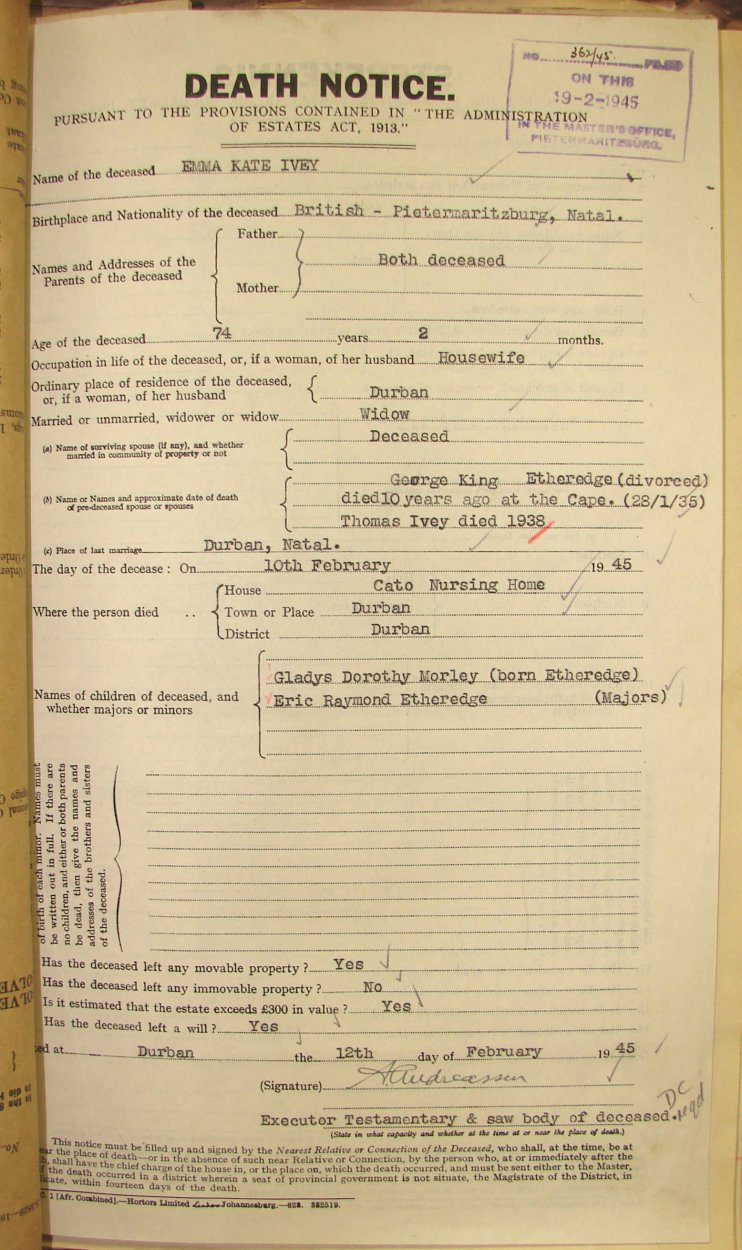 NO. 362/45 FILED
ON THIS
19-2-1945
IN THE MASTER'S OFFICE,
PIETERMARITZBURG.
DEATH NOTICE.
PURSUANT TO THE PROVISIONS CONTAINED IN "THE ADMINISTRATION
OF ESTATES ACT, 1913."
Name of the deceased EMMA KATE IVEY
Birthplace and Nationality of the deceased British - Pietermaritzburg, Natal.
Names and Addresses of the
Parents of the deceased
Father
Both deceased
Mother
Age of the deceased 74 years 2 months.
Occupation in life of the deceased, or, if a woman, of her husband Housewife
Ordinary place of residence of the deceased,
or, if a woman, of her husband Durban
Married or unmarried, widower or widow Widow
(a) Name of surviving spouse (if any), and whether
married in community of property or not
Deceased
(b) Name or Names and approximate date of death
of pre-deceased spouse or spouses
George King Etheredge (divorced)
died 10 years ago at the Cape. (28/1/35)
Thomas Ivey died 1938
(c) Place of last marriage Durban, Natal.
The day of the decease: On 10th February 19 45
Where the person died ..
House Cato Nursing Home
Town or Place Durban
District Durban
Names of children of deceased, and
whether majors or minors
Gladys Dorothy Morley (born Etheredge)
Eric Raymond Etheredge (Majors)
of birth of each minor. Names must
be written out in full. If there are
no children, and either or both parents
be dead, then give the names and
addresses of the brothers and sisters
of the deceased.
Has the deceased left any movable property? Yes
Has the deceased left any immovable property? No
Is it estimated that the estate exceeds £300 in value? Yes
Has the deceased left a will? Yes
ed at Durban the 12th day of February 19 45
(Signature) A Andreassen
Executor Testamentary & saw body of deceased.
DC
reqd
(State in what capacity and whether at the time at or near the place of death.)
This notice must be filled up and signed by the Nearest Relative or Connection of the Deceased, who shall, at the time, be at
ear the place of death—or in the absence of such near Relative or Connection, by the person who, at or immediately after the
th, shall have the chief charge of the house in, or the place on, which the death occurred, and must be sent either to the Master,
f the death occurred in a district wherein a seat of provincial government is not situate, the Magistrate of the District, in
icate, within fourteen days of the death.
1 [Afr. Combined].—Hortors Limited Johannesburg.—623. 382519.